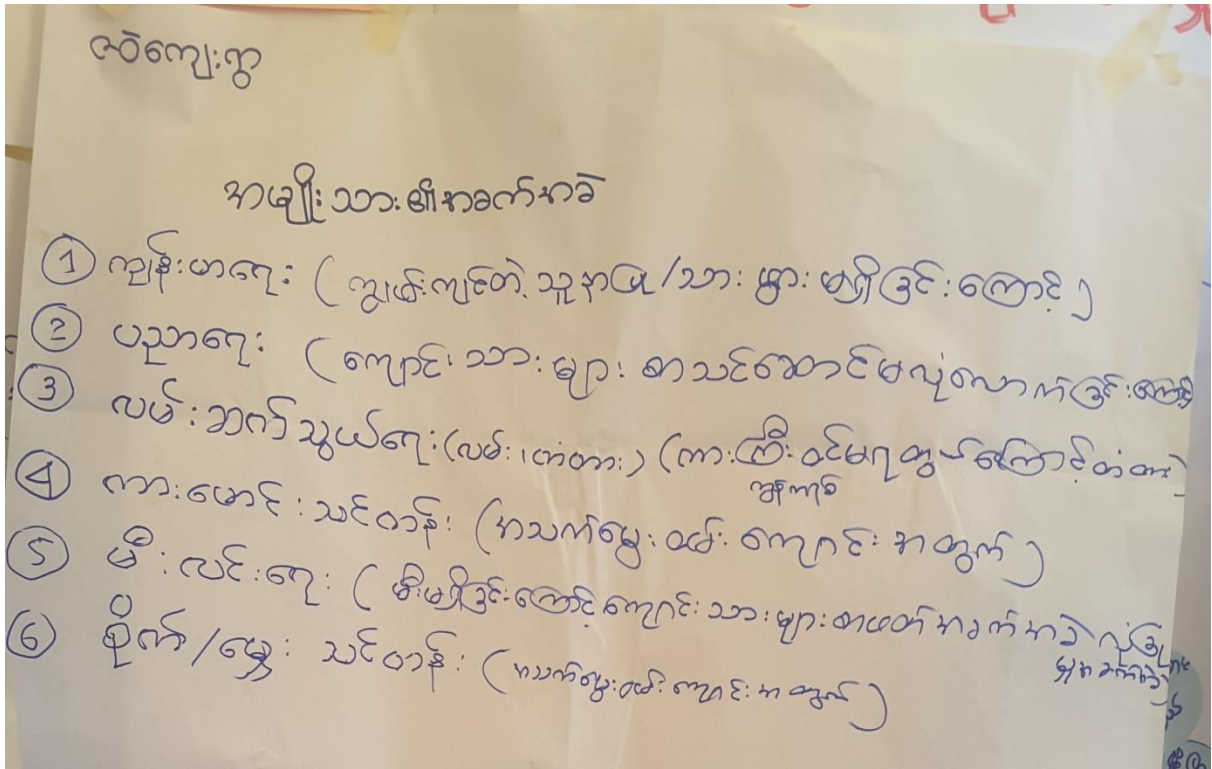 လဲကျေးရွာ
အမျိုးသား၏အခက်အခဲ
① ကျန်းမာရေး ( ကျွမ်းကျင်တဲ့ သူနာပြု/သားဖွား မရှိခြင်းကြောင့် )
② ပညာရေး ( ကျောင်းသားများ စာသင်ဆောင်မလုံလောက်ခြင်းကြောင့်
③ လမ်းဆက်သွယ်ရေး (လမ်း၊တံတား) (ကားကြီးဝင်မရတွယ်ကြောင့်တံတား)
ကွန်ကရစ်
④ ကားမောင်းသင်တန်း (အသက်မွေးဝမ်းကျောင်းအတွက်)
⑤ မီးလင်းရေး ( မီးမရှိခြင်းကြောင့် ကျောင်းသားများစာဖတ်အခက်အခဲ လုံခြုံ
မှုအခက်အခဲ)
⑥ စိုက်/မွေး သင်တန်း (အသက်မွေးဝမ်းကျောင်းအတွက်)